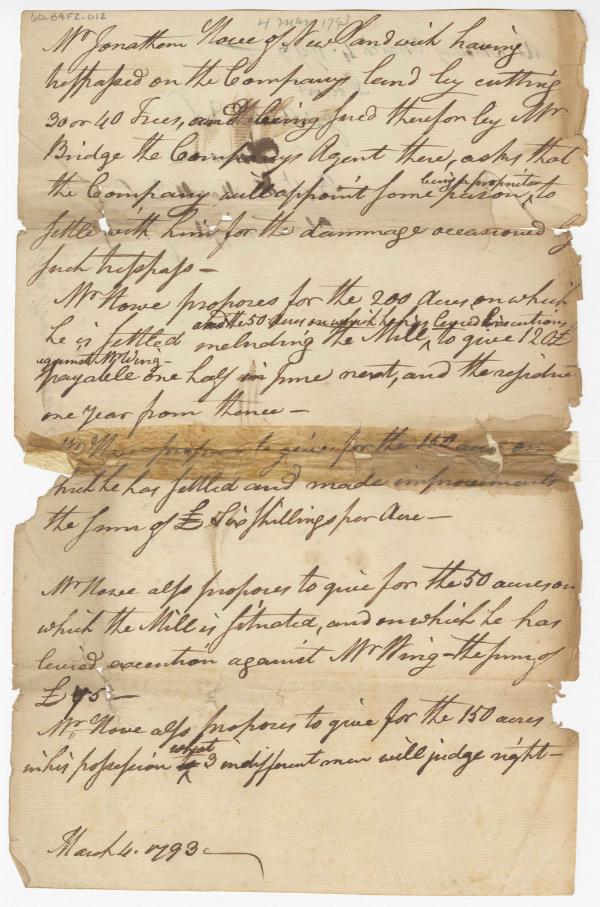 60-B4F2-012
4 Mar 1793
Mr Jonathem Nowe of New Sandwich having
trespassed on the Companys land by cutting
30 or 40 Trees, and being sued therefor by Mr
Bridge the Companys Agent there, asks that
the Company will appoint some person, being a proprietor, to
settle with him for the dammage occasioned by
such trespass —
Mr Nowe proposes for the 200 Acres on which
he is settled including the Mill, and the 50 acres on which he has levied Executions
against Mr Wing — to give 120£
payable one half in June next, and the residue
one year from thence —
Mr Nowe proposes to give for the 150 acres on
which he has settled and made improvements
the sum of £ Six shillings per Acre —
Mr Nowe also proposes to give for the 50 acres on
which the Mill is situated, and on which he has
levied execution against Mr Wing — the sum of
£45 —
Mr Nowe also proposes to give for the 150 acres
in his possession what 3 indifferent men will judge right —
March 4. 1793